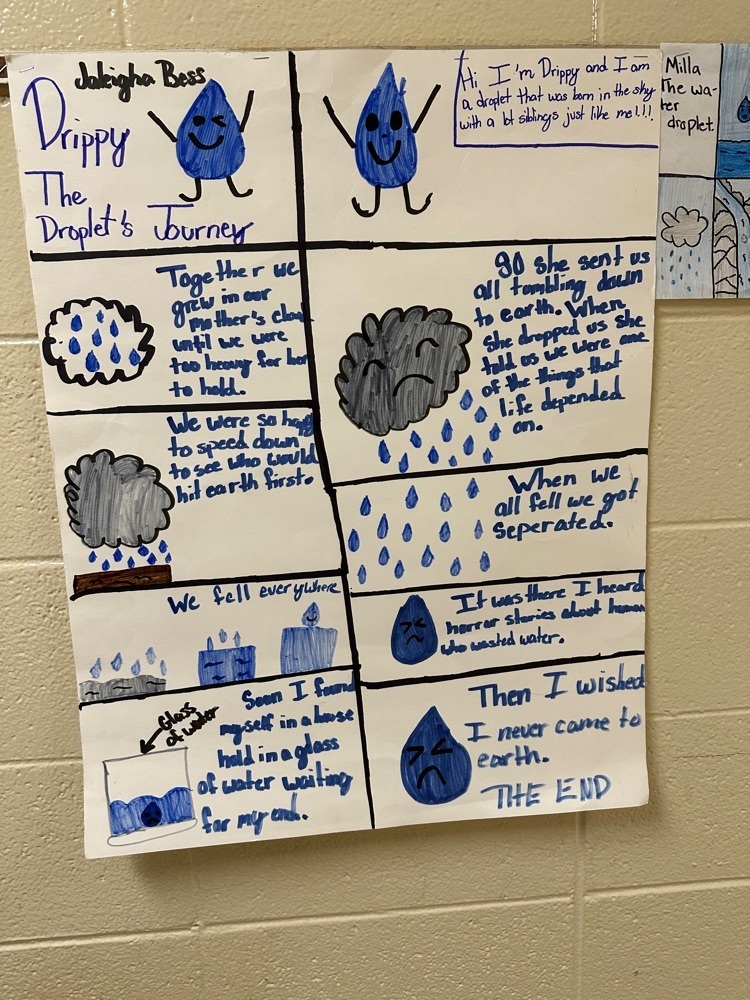 Jaleigha Bess
Drippy
The
Droplet's Journey
Hi I'm Drippy and I am
a droplet that was born in the sky
with a lot siblings just like me!!!!
Together we
grew in our
mother's
until we were
too heavy for her
to hold.
SO she sent us
all tumbling down
to earth. When
she dropped us she
told us we were one
of the things that
life depended
on.
We were so
to speed down
to see who would
hit earth first.
When we
all fell we got
seperated.
We fell everywhere
It was there I heard
horror stories about human
who wasted water.
Glass
of water
Soon I found
myself in a house
hold in a glass
of water waiting
for my end.
Then I wished
I never came to
earth.
THE END
Milla
The wa-
ter
droplet.